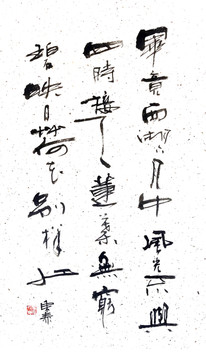 畢竟西湖六月中風光不與
四時接天蓮葉無窮
碧映日荷花別樣紅